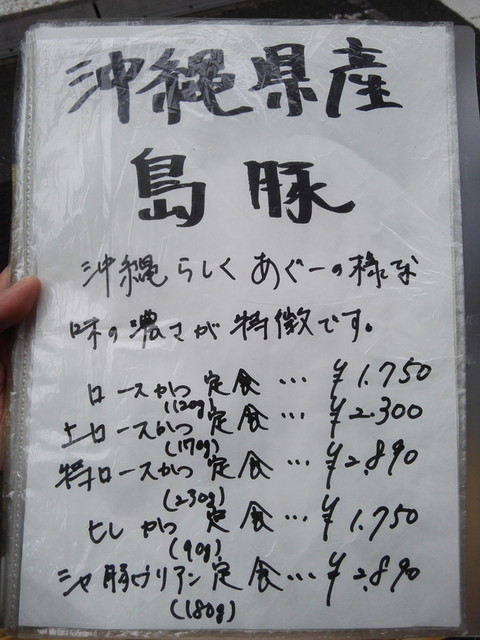 沖縄県産
島豚
沖縄らしくあぐーの様な
味の濃さが特徴です。
ロースかつ定食…¥1.750
(120g)
上ロースかつ定食…¥2.300
(170g)
特ロースかつ定食…¥2.890
(230g)
ヒレかつ定食…¥1.750
(90g)
シャ豚ブリアン定食…¥2.890
(180g)